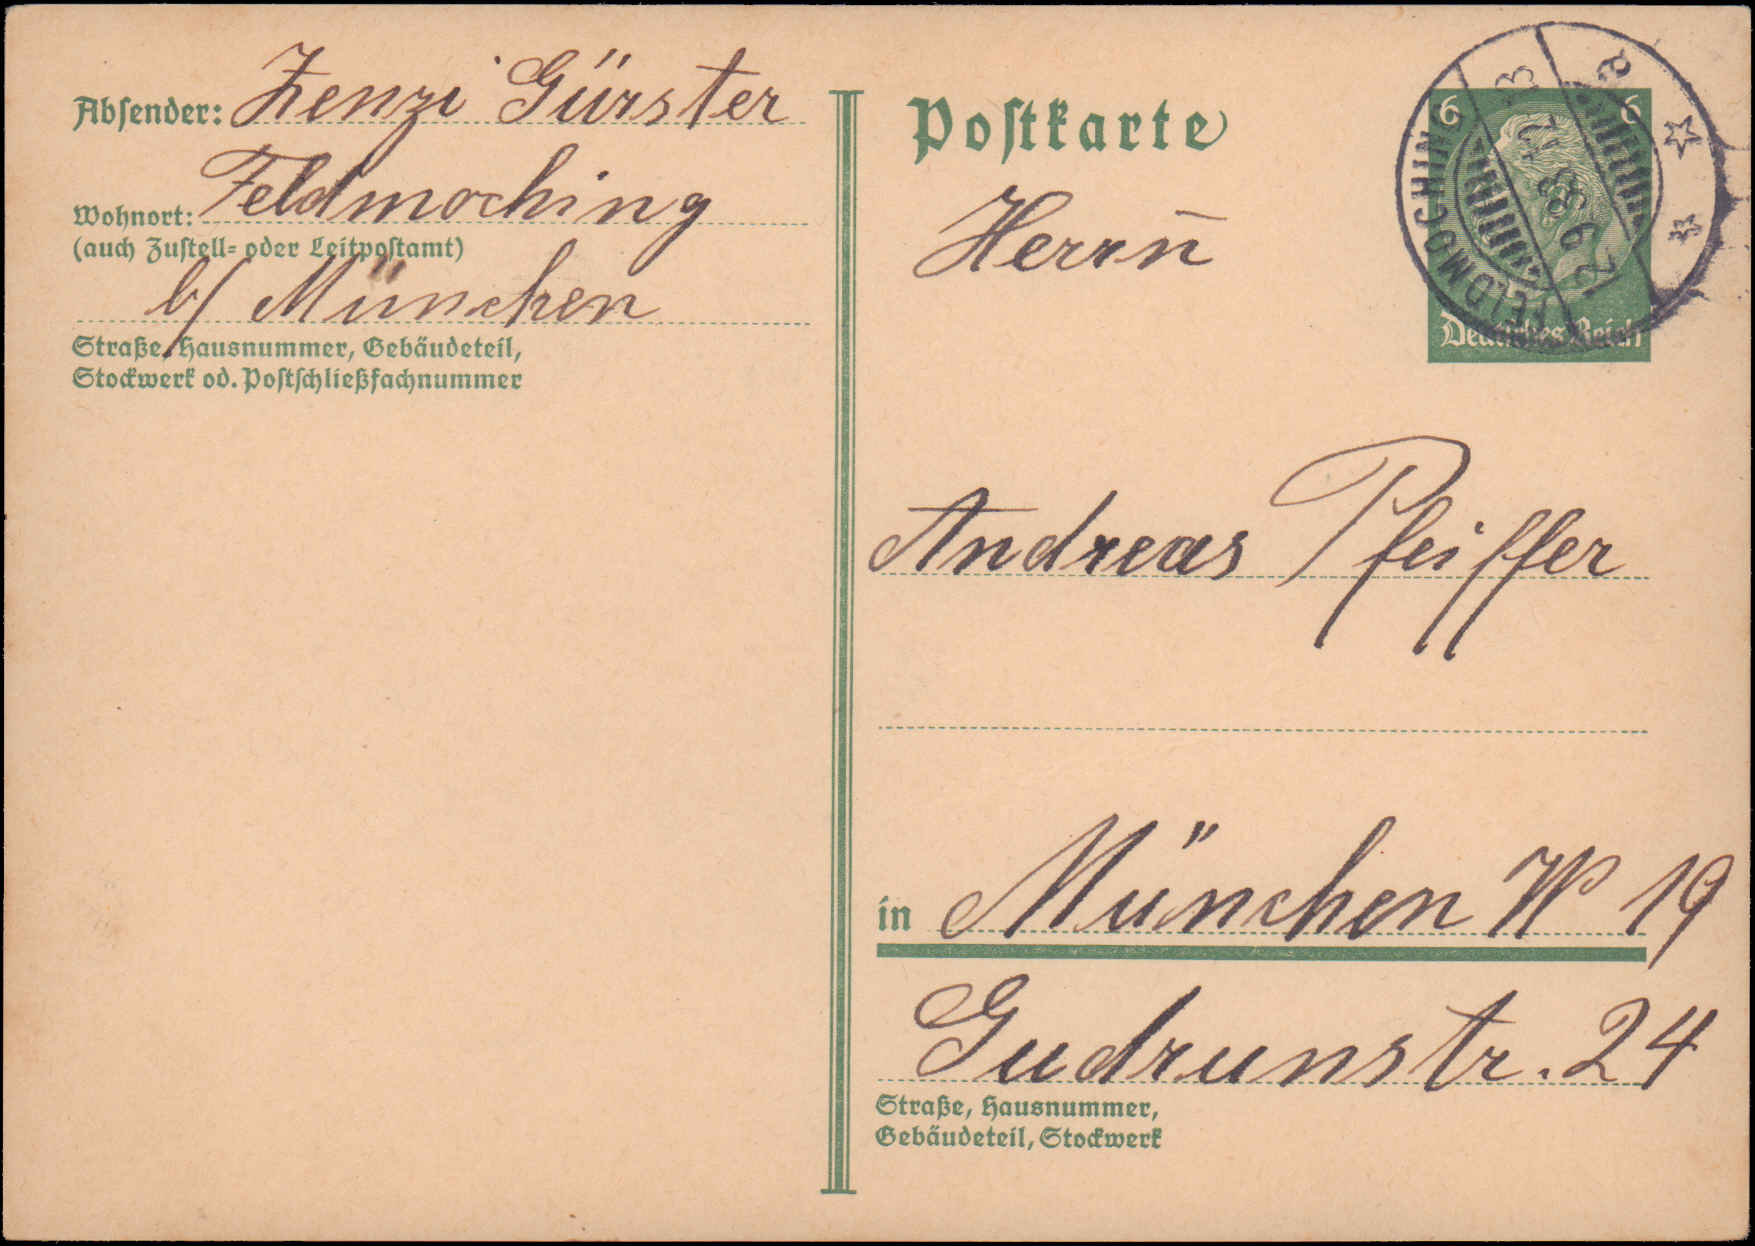 Absender: Zenzi Gürster
Wohnort: Feldmoching
(auch Zustell- oder Leitpostamt)
b/ München
Straße, Hausnummer, Gebäudeteil,
Stockwerk od. Postschließfachnummer
Postkarte
6 6
Deutsches Reich
FELDMOCHING
2.9.38.17
Herrn̄
Andreas Pfeiffer
in München W 19
Gudrunstr. 24
Straße, Hausnummer,
Gebäudeteil, Stockwerk